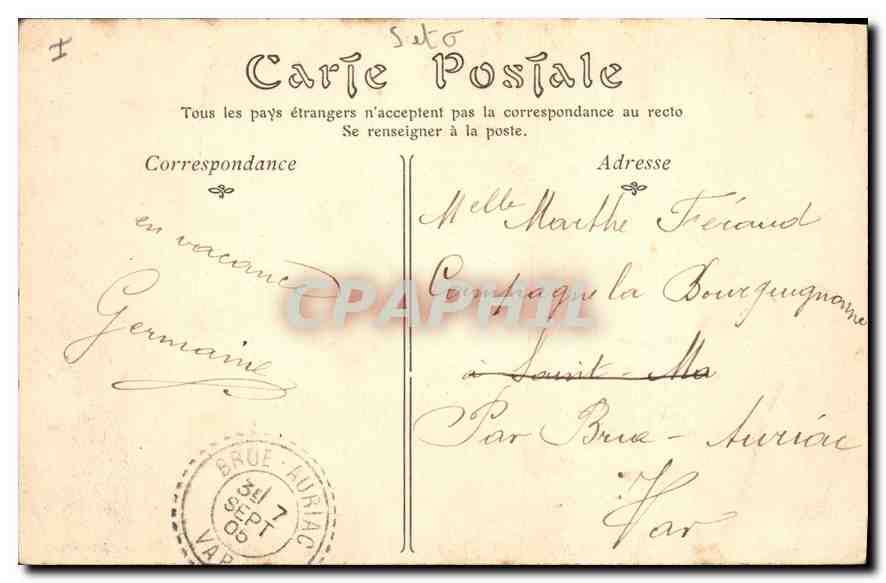 I
5 et 6
Carte Postale
Tous les pays étrangers n'acceptent pas la correspondance au recto
Se renseigner à la poste.
Correspondance
en vacance
Germaine
BRUE-AURIAC
3E 7
SEPT
05
VAR
Adresse
Melle Marthe Féraud
Campagne la Bourguignonne
à Saint-Ma
Par Brue-Auriac
Var
CPAPHIL